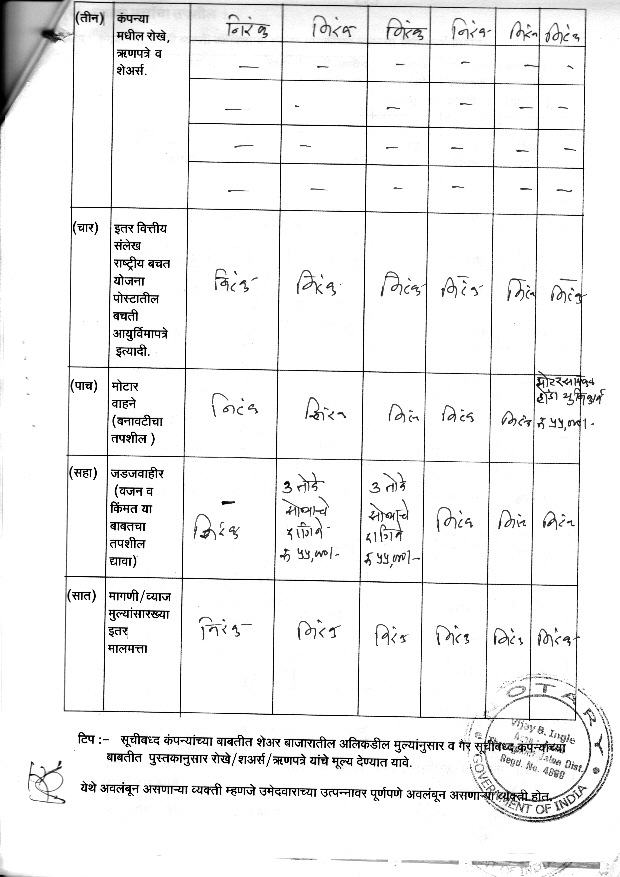 (तीन) कंपन्या निरंक निरंक निरंक निरंक निरंक निरंक
मधील रोखे,
ऋणपत्रे व
शेअर्स.
— — — — — —
— - — — — —
— — — — — —
— — — — — —
(चार) इतर वित्तीय
संलेख
राष्ट्रीय बचत
योजना निरंक निरंक निरंक निरंक निरंक निरंक
पोस्टातील
बचती
आयुर्विमापत्रे
इत्यादी.
(पाच) मोटार
वाहने निरंक निरंक निरंक निरंक निरंक
(बनावटीचा
तपशील )
मोटरसायकल
होंडा
रु ५५,०००/-
(सहा) जडजवाहीर
(वजन व
किंमत या
बाबतचा
तपशील
द्यावा)
निरंक
3 तोळे
सोन्याचे
दागिने
रु ५५,०००/-
3 तोळे
सोन्याचे
दागिने
रु ५५,०००/-
निरंक निरंक निरंक
(सात) मागणी/व्याज
मुल्यांसारख्या
इतर निरंक निरंक निरंक निरंक निरंक निरंक
मालमत्ता
टिप :– सूचीवध्द कंपन्यांच्या बाबतीत शेअर बाजारातील अलिकडील मुल्यांनुसार व गैर सूचीवध्द कंपन्यांच्या
बाबतीत पुस्तकानुसार रोखे/शअर्स/ऋणपत्रे यांचे मूल्य देण्यात यावे.
येथे अवलंबून असणाऱ्या व्यक्ती म्हणजे उमेदवाराच्या उत्पन्नावर पूर्णपणे अवलंबून असणाऱ्या व्यक्ती होत.
NOTARY
Vijay B. Ingle
Jalna Dist.
Regd. No. 4868
GOVERNMENT OF INDIA